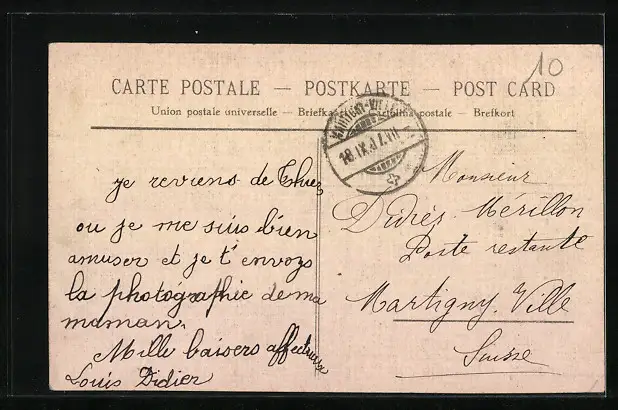 10
CARTE POSTALE — POSTKARTE — POST CARD
Union postale universelle — postale — Brefkort
MARTIGNY-VILLE
18.IX.07.VII
je reviens de
ou je me suis bien
amuser et je t'envoys
la photographie de ma
maman.
Mille baisers affectueux
Louis Didier
Monsieur
Merillon
Poste restante
Martigny. Ville
Suisse